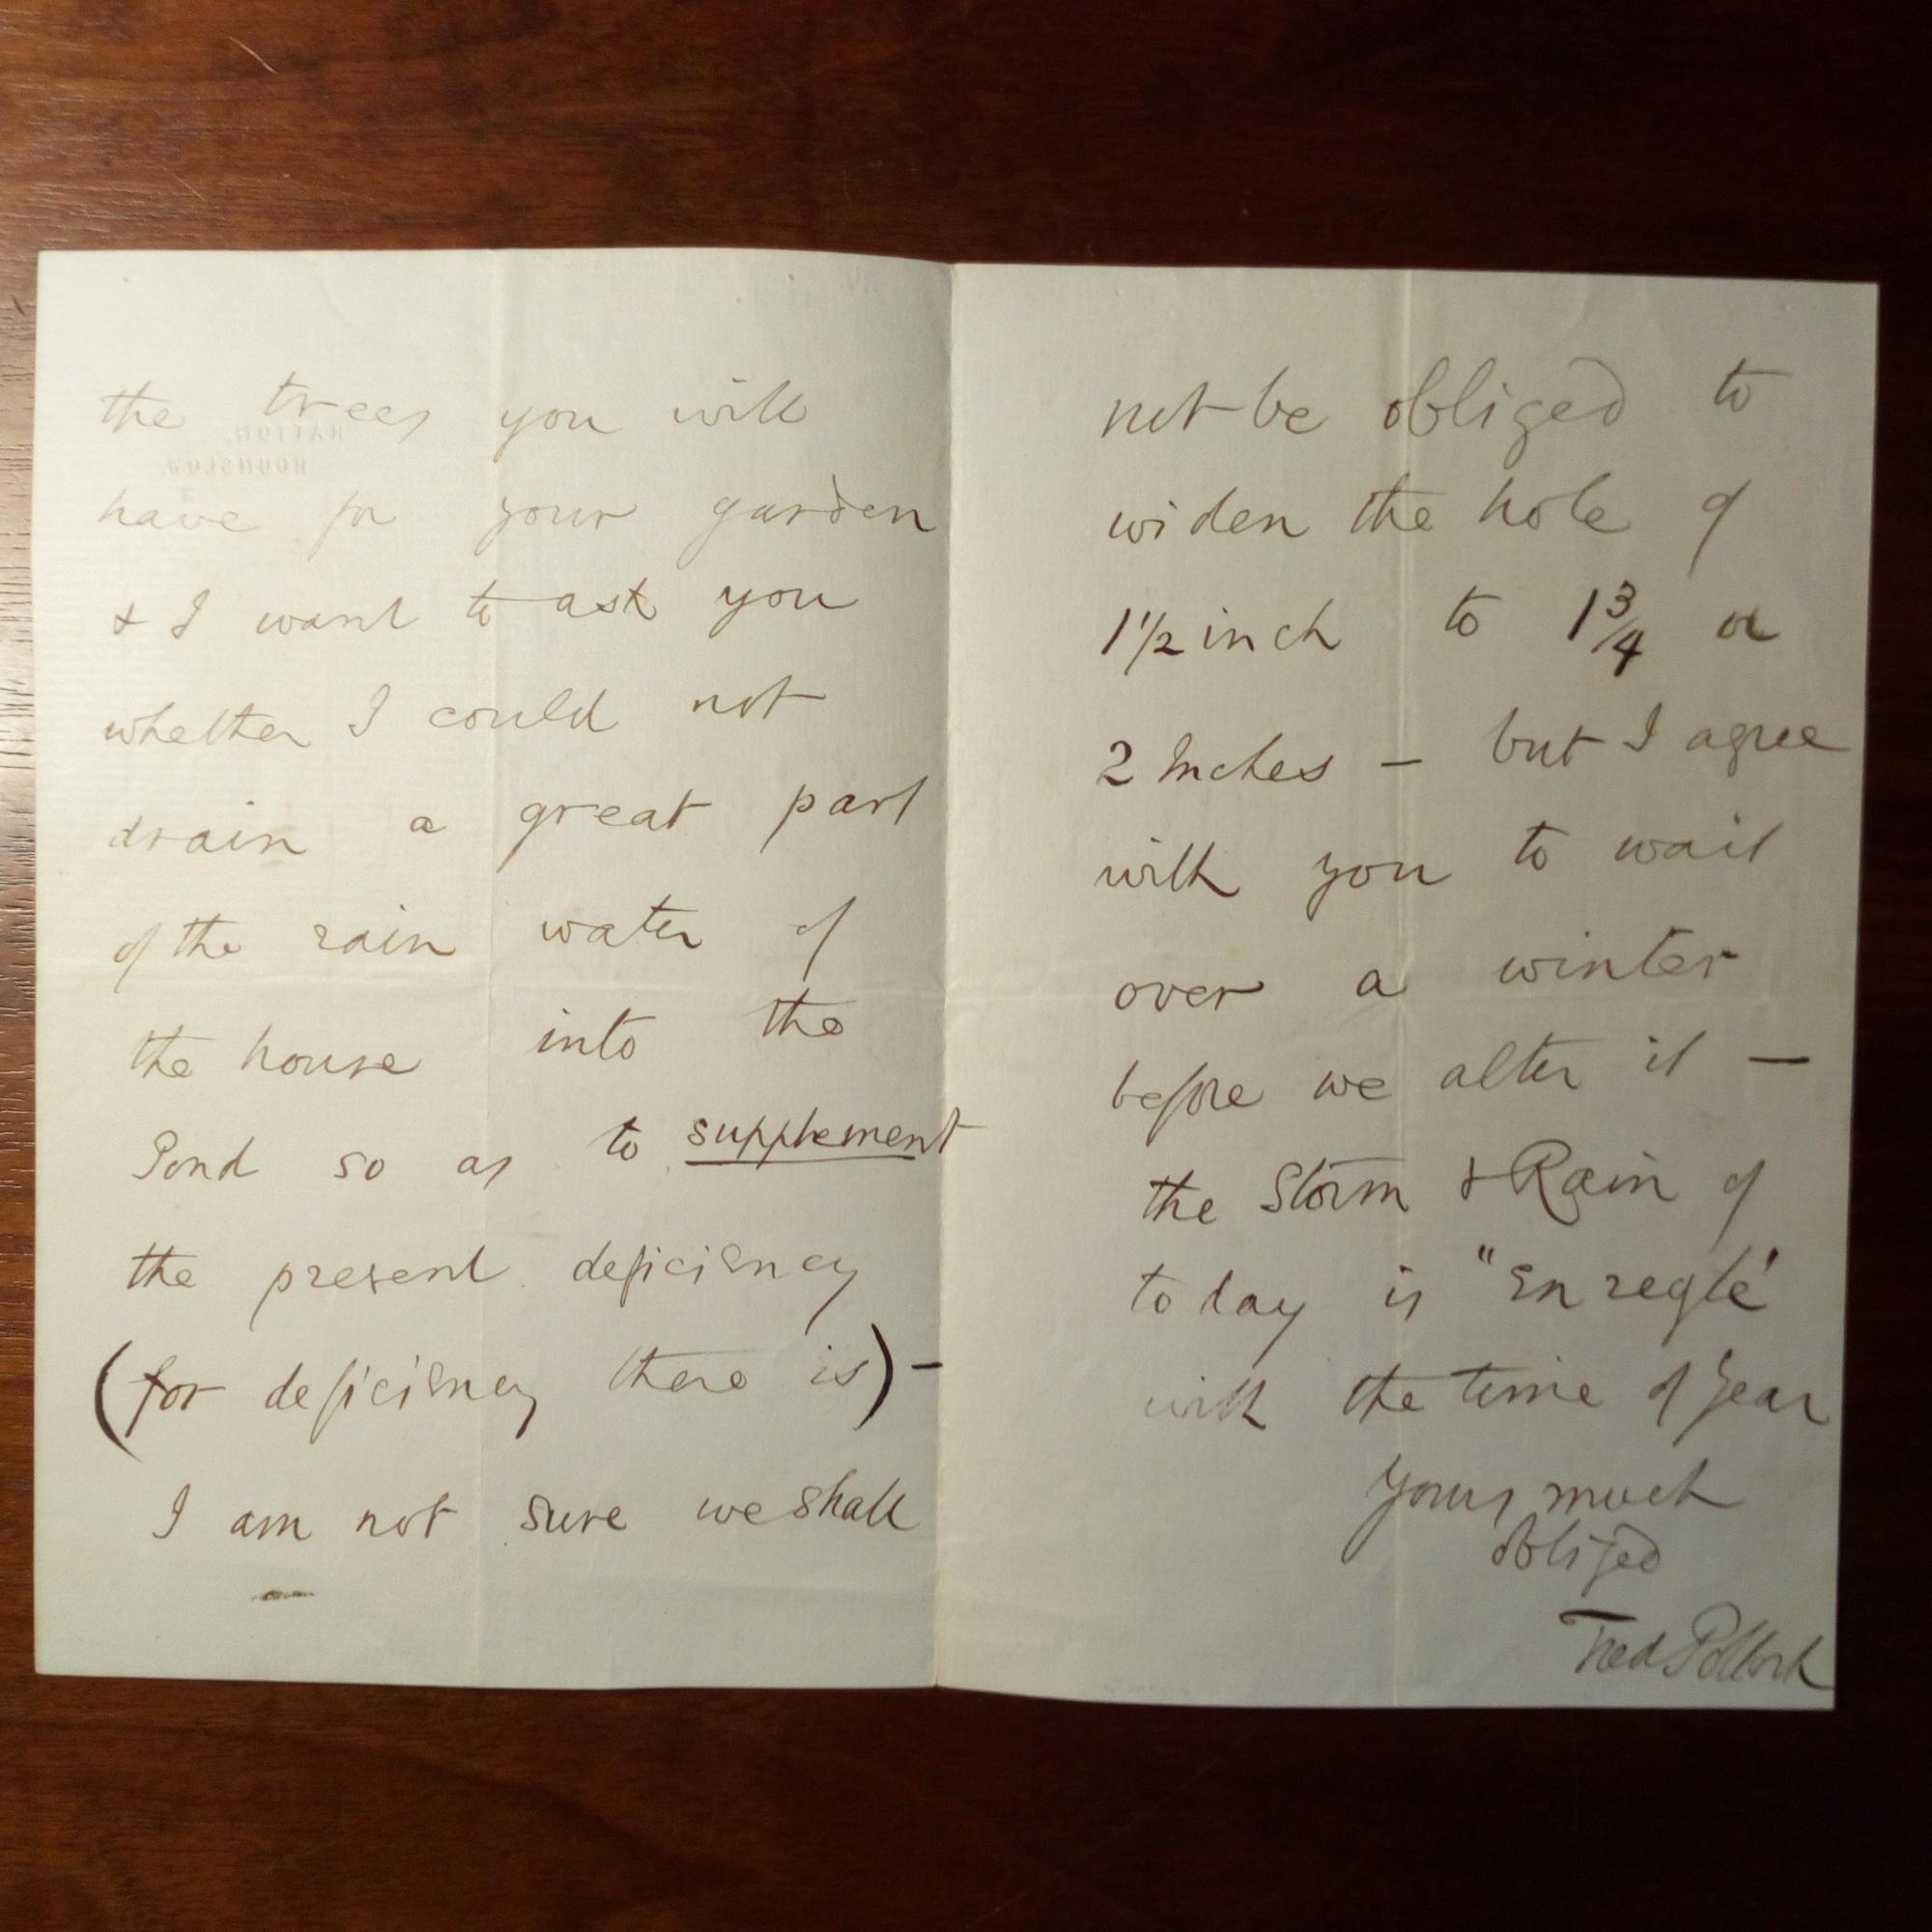 the trees you will
have for your garden
& I want to ask you
whether I could not
drain a great part
of the rain water of
the house into the
Pond so as to supplement
the present deficiency
(for deficiency there is) –
I am not sure we shall
not be obliged to
widen the hole of
1 1/2 inch to 1 3/4 or
2 Inches – but I agree
with you to wait
over a winter
before we alter it –
the Storm & Rain of
to day is "En reglé"
with the time of Year
Yours much
obliged
Fred Pollock
HATTON.
HOUNSLOW.